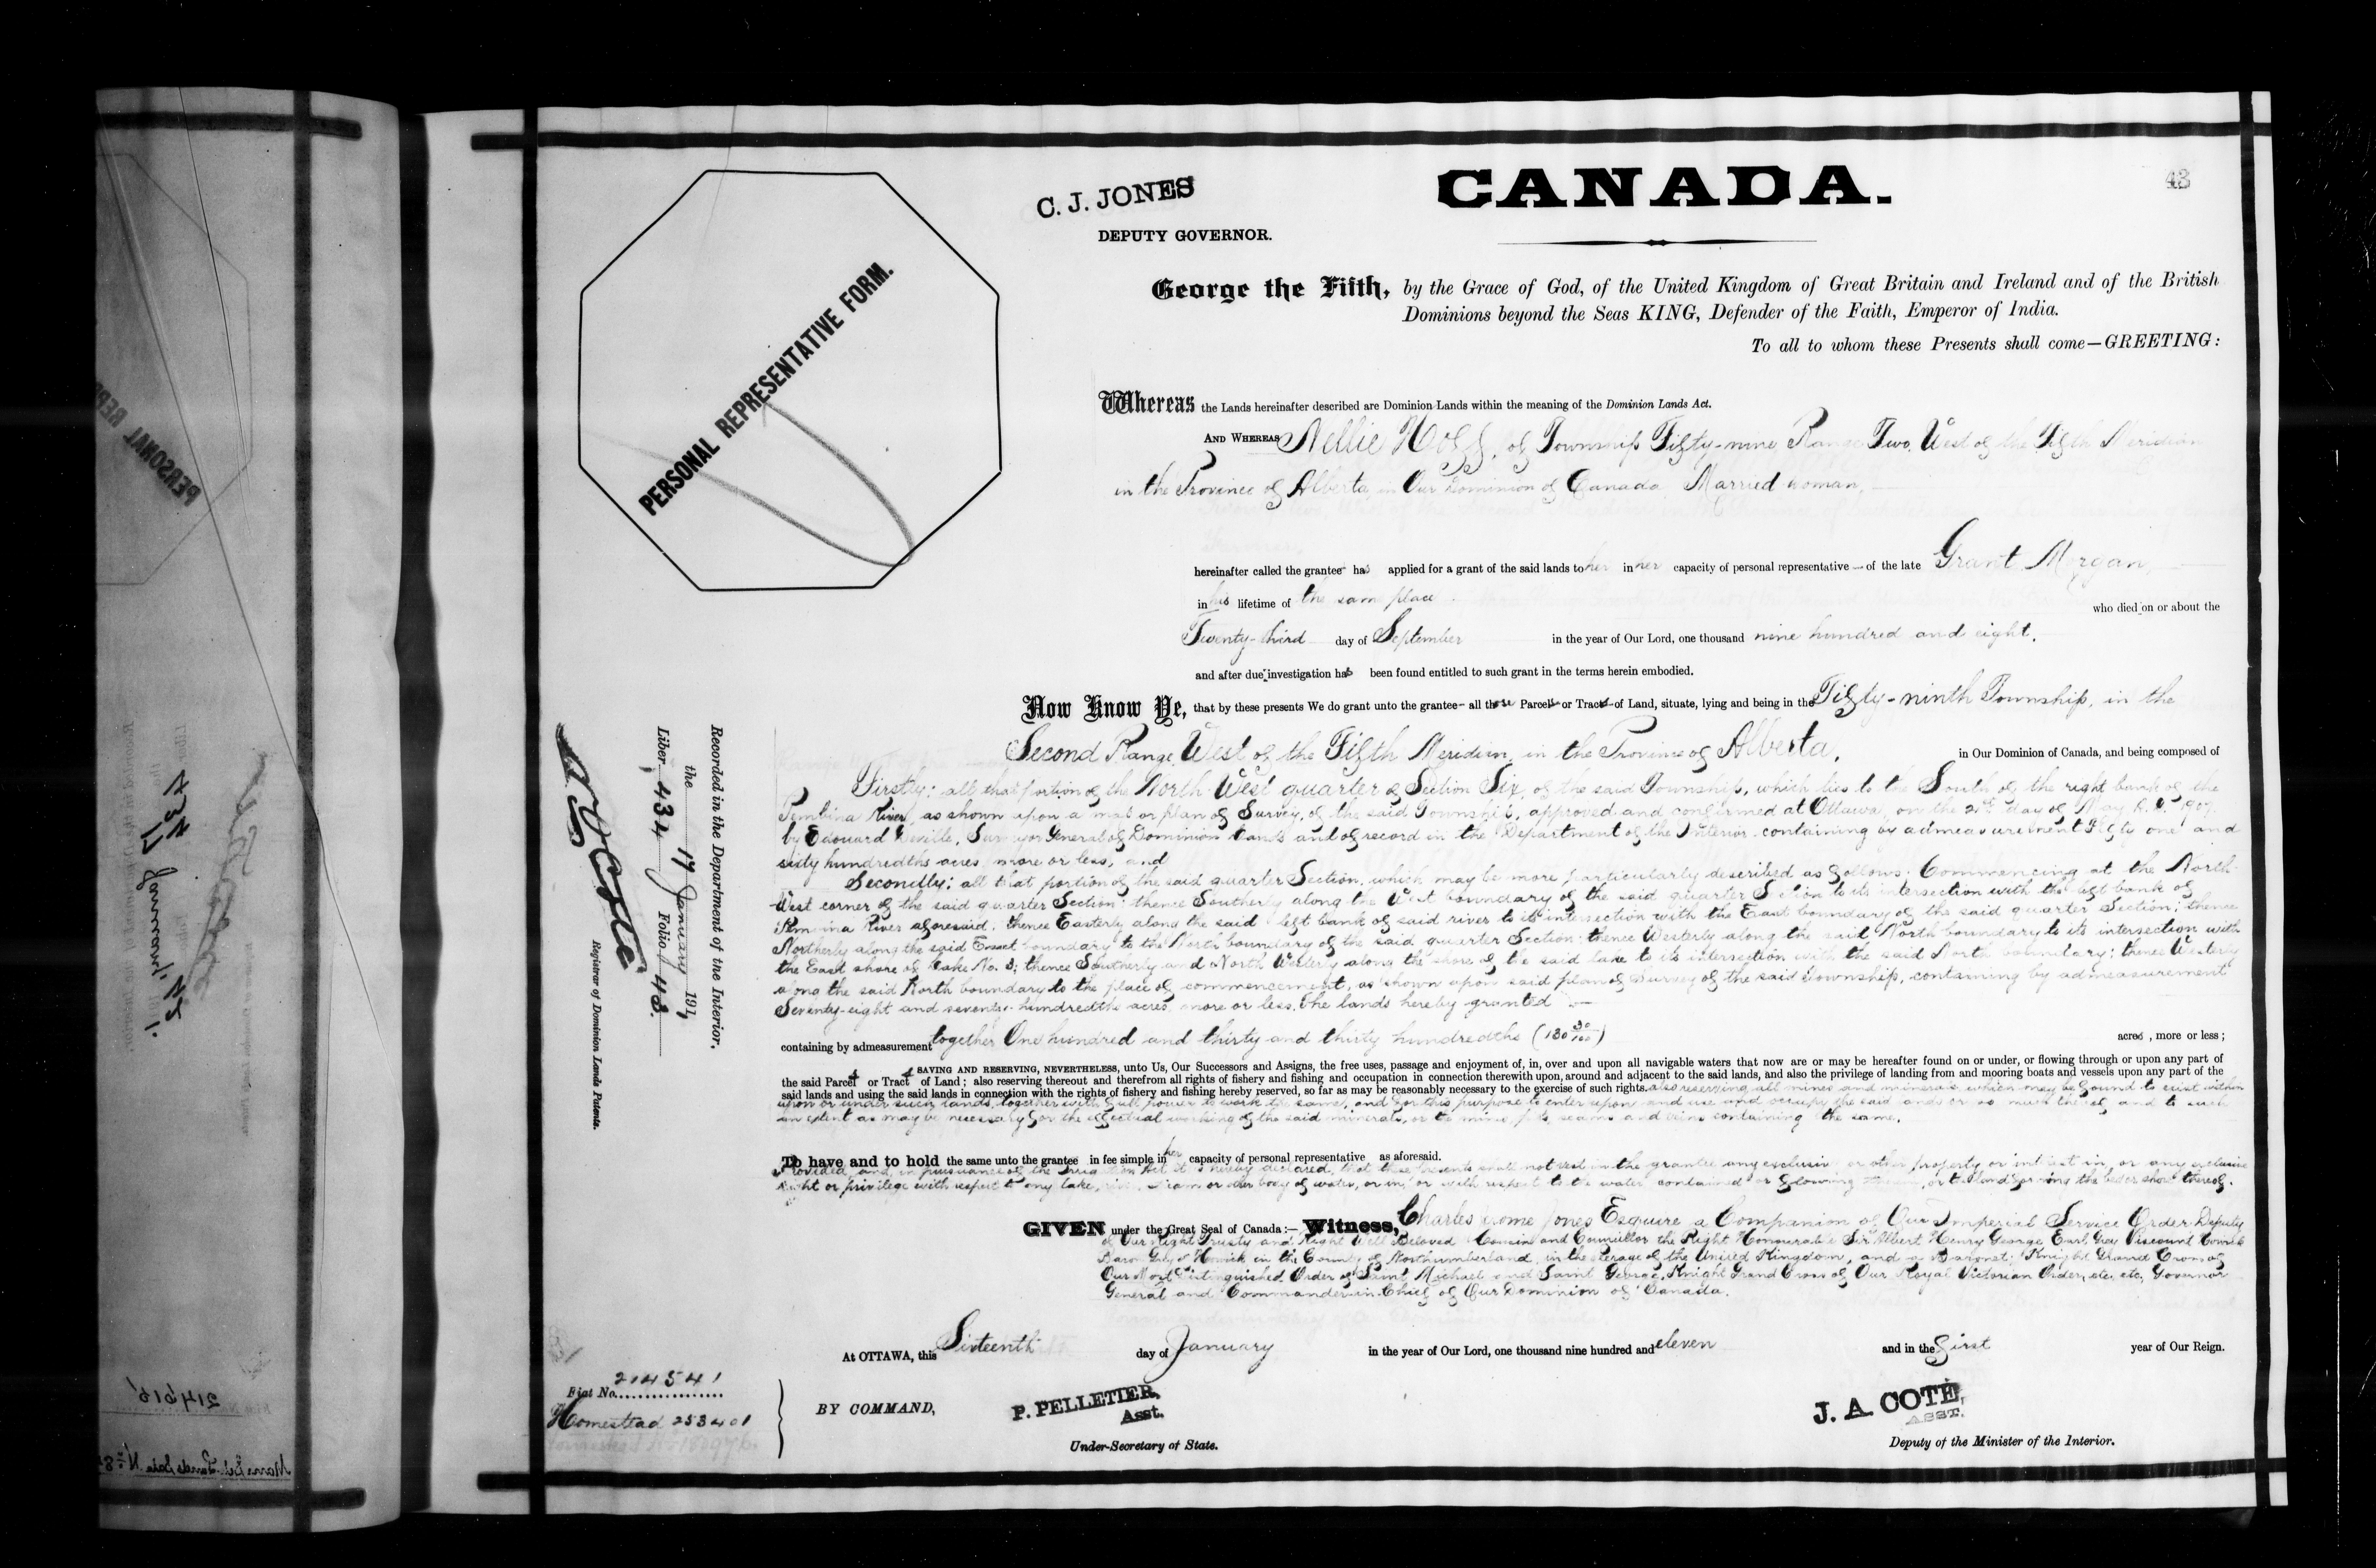 43
CANADA.
C. J. JONES
DEPUTY GOVERNOR.
PERSONAL REPRESENTATIVE FORM.
George the Fifth, by the Grace of God, of the United Kingdom of Great Britain and Ireland and of the British
Dominions beyond the Seas KING, Defender of the Faith, Emperor of India.
To all to whom these Presents shall come—GREETING:
Whereas the Lands hereinafter described are Dominion Lands within the meaning of the Dominion Lands Act.
AND WHEREAS Nellie Hoff, of Township Fifty-nine Range Two, West of the Fifth Meridian
in the Province of Alberta, in Our Dominion of Canada Married woman,
hereinafter called the grantee has applied for a grant of the said lands to her in her capacity of personal representative of the late Grant Morgan,
in his lifetime of the same place.
who died on or about the
Twenty-third day of September in the year of Our Lord, one thousand nine hundred and eight,
and after due investigation has been found entitled to such grant in the terms herein embodied.
Now Know Ye, that by these presents We do grant unto the grantee all those Parcels or Tracts of Land, situate, lying and being in the Fifty-ninth Township, in the
Second Range, West of the Fifth Meridian, in the Province of Alberta, in Our Dominion of Canada, and being composed of
Firstly: all that portion of the North West quarter of Section Six, of the said Township, which lies to the South of the right bank of the
Pembina River, as shown upon a map or plan of Survey, of the said Township, approved and confirmed at Ottawa, on the 2nd day of May A.D. 1907,
by Edouard Deville, Surveyor General of Dominion Lands and of record in the Department of the Interior containing by admeasurement Fifty one and
sixty hundredths acres, more or less, and
Secondly: all that portion of the said quarter Section, which may be more particularly described as follows: Commencing at the North
West corner of the said quarter Section; thence Southerly along the West boundary of the said quarter Section to its intersection with the left bank of
Pembina River aforesaid; thence Easterly along the said left bank of said river to its intersection with the East boundary of the said quarter Section; thence
Northerly along the said East boundary to the North boundary of the said quarter Section; thence Westerly along the said North boundary to its intersection with
the East shore of Lake No. 3; thence Southerly and North Westerly along the shore of the said lake to its intersection with the said North boundary; thence Westerly
along the said North boundary to the place of commencement, as shown upon said plan of Survey of the said Township, containing by admeasurement
Seventy-eight and seventy-hundredths acres, more or less. The lands hereby granted
containing by admeasurement together One hundred and thirty and thirty hundredths (130 30/100) acres, more or less;
SAVING AND RESERVING, NEVERTHELESS, unto Us, Our Successors and Assigns, the free uses, passage and enjoyment of, in, over and upon all navigable waters that now are or may be hereafter found on or under, or flowing through or upon any part of
the said Parcels or Tracts of Land; also reserving thereout and therefrom all rights of fishery and fishing and occupation in connection therewith upon, around and adjacent to the said lands, and also the privilege of landing from and mooring boats and vessels upon any part of the
said lands and using the said lands in connection with the rights of fishery and fishing hereby reserved, so far as may be reasonably necessary to the exercise of such rights. also reserving all mines and minerals which may be found to exist within
upon or under such lands, together with full power to work the same, and for this purpose to enter upon and use and occupy the said lands or so much thereof and to such
an extent as may be necessary for the effectual working of the said minerals, or the mines, pits, seams and veins containing the same.
To have and to hold the same unto the grantee in fee simple in her capacity of personal representative as aforesaid.
Provided, and in pursuance of the Irrigation Act it is hereby declared, that these presents shall not vest in the grantee any exclusive or other property or interest in or any exclusive
right or privilege with respect to any lake, river, stream or other body of water, or in, or with respect to the water contained or flowing therein, or the land forming the bed or shore thereof.
GIVEN under the Great Seal of Canada:— Witness, Charles Jerome Jones Esquire a Companion of Our Imperial Service Order Deputy
of Our Right Trusty and Right Well Beloved Cousin and Councillor the Right Honourable Sir Albert Henry George Earl Grey Viscount Howick
Baron Grey of Howick in the County of Northumberland, in the Peerage of the United Kingdom, and a Baronet; Knight Grand Cross of
Our Most Distinguished Order of Saint Michael and Saint George, Knight Grand Cross of Our Royal Victorian Order, etc. etc. Governor
General and Commander-in-Chief of Our Dominion of Canada.
At OTTAWA, this Sixteenth day of January in the year of Our Lord, one thousand nine hundred and eleven and in the first year of Our Reign.
BY COMMAND,
P. PELLETIER,
Asst.
Under-Secretary of State.
J. A. COTE,
ASST.
Deputy of the Minister of the Interior.
Fiat No. 214541
Homestead 253401
Recorded in the Department of the Interior,
the 17 January 1911
Liber 434 Folio 43.
Registrar of Dominion Lands Patents.